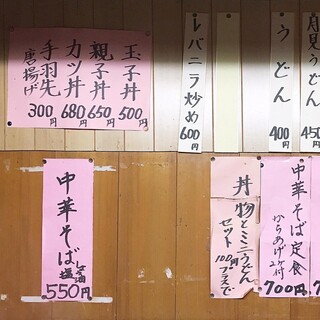 月見うどん
450
うどん
400円
レバニラ炒め
600円
玉子丼
500円
親子丼
650円
カツ丼
680円
手羽先
唐揚げ
300円
中華そば定食
からあげ2ケ付
700円
丼物とミニうどん
セット
100円
プラスで
中華そば
塩
550円